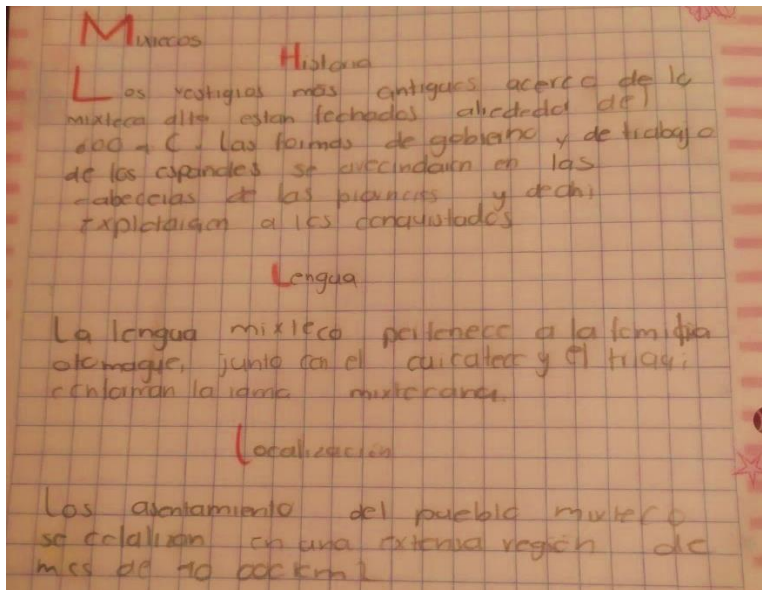 Mixtecos
Historia
Los vestigios más antiguos acerca de la
mixteca alta estan fechados alrededor del
a C. las formas de gobierno y de trabajo
de los españoles se avecindaron en las
cabeceras de las y de ahi
explotaron a los conquistados
Lengua
La lengua mixteco pertenece a la familia
otomague, junto con el cuicateco y el triqui
conforman la rama mixtecana.
Localización
Los asentamiento del pueblo mixteco
se en una extensa region de
mas de 40 000 km2